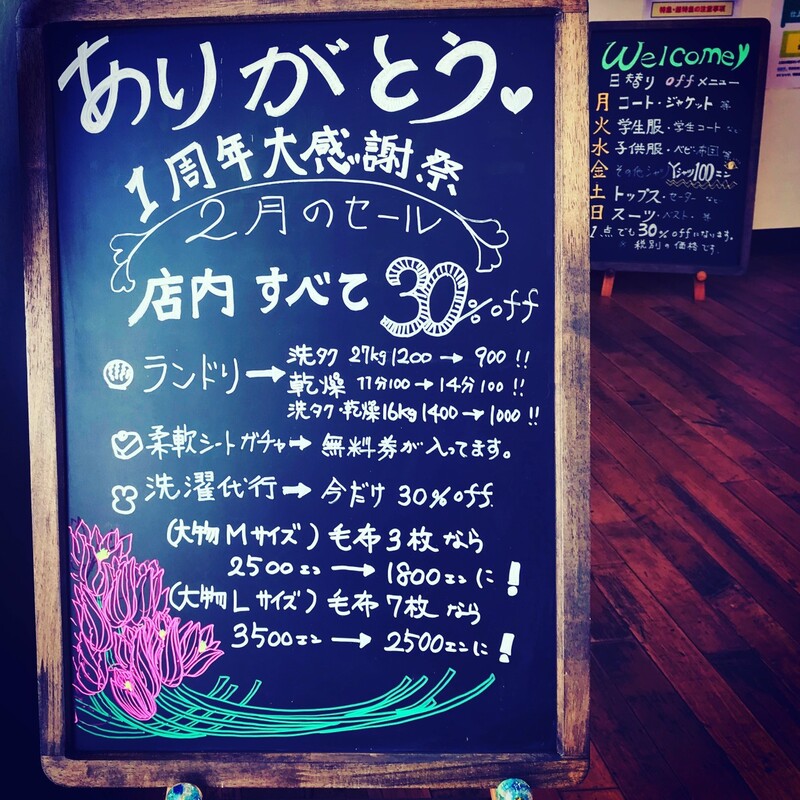 ありがとう♡
1周年大感謝祭
2月のセール
店内 すべて 30%off
ランドリ→ 洗タク 27kg 1200 → 900 !!
乾燥 11分100 → 14分 100 !!
洗タク・乾燥16kg 1400 → 1000 !!
柔軟シートガチャ→ 無料券が入ってます。
洗濯代行→ 今だけ 30%off.
(大物Mサイズ) 毛布3枚なら
2500エン → 1800エンに!
(大物Lサイズ) 毛布7枚なら
3500エン → 2500エンに!
Welcome
日替り offメニュー
月 コート・ジャケット 等
火 学生服・学生コート など
水 子供服・ベビー布団 等
金 その他シャツ Yシャツ100エン
土 トップス・セーター など
日 スーツ・ベスト・等
1点でも30%offになります。
※ 税別の価格です。